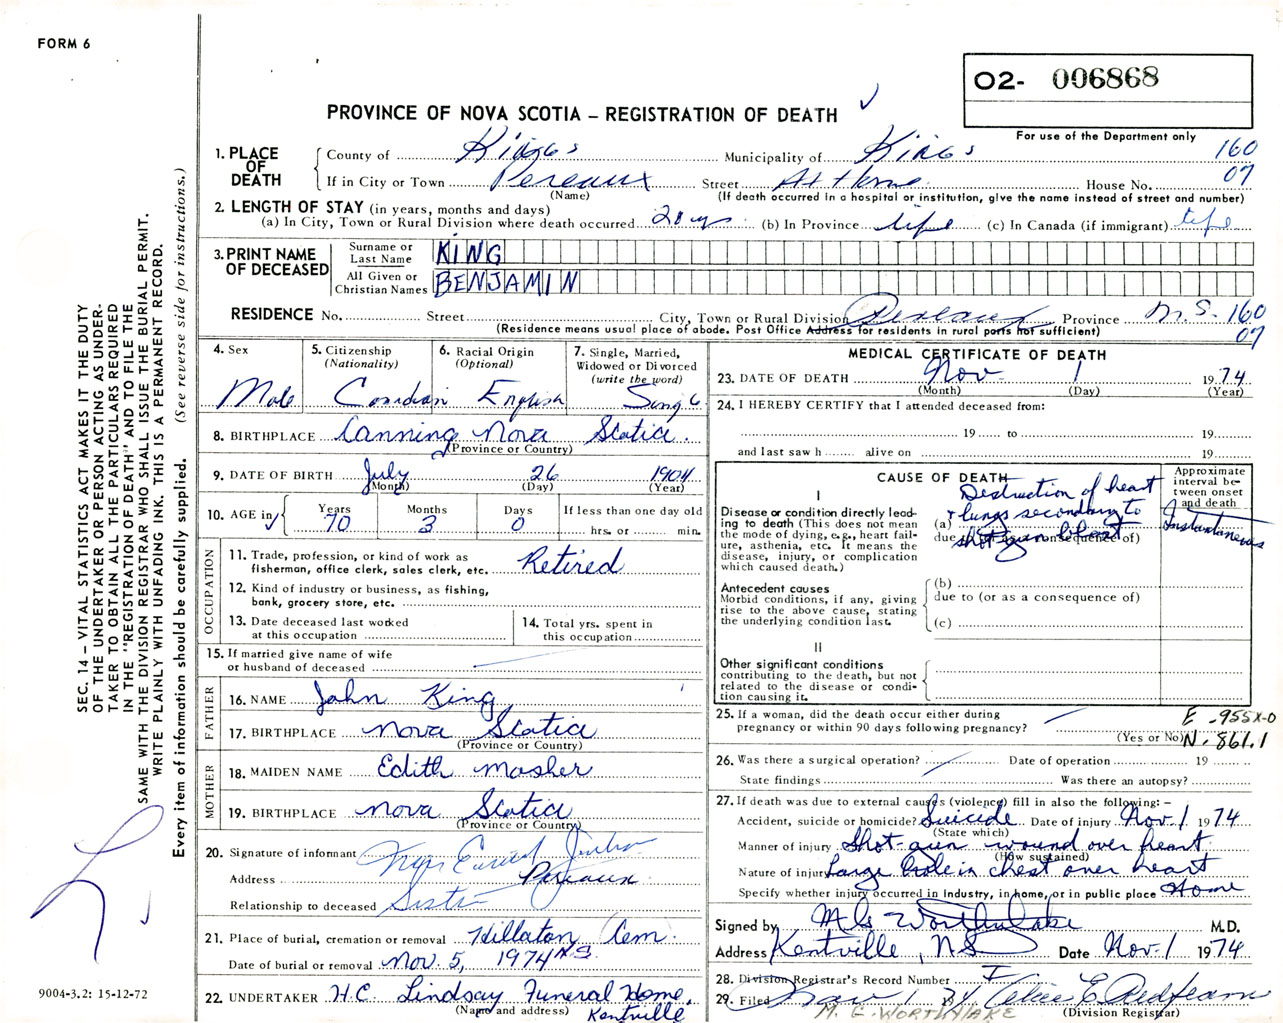 FORM 6
O2- 006868
PROVINCE OF NOVA SCOTIA – REGISTRATION OF DEATH
For use of the Department only
1. PLACE OF DEATH
County of Kings Municipality of Kings 160
If in City or Town Pereaux Street At Home House No. 07
(Name) (If death occurred in a hospital or institution, give the name instead of street and number)
2. LENGTH OF STAY (in years, months and days)
(a) In City, Town or Rural Division where death occurred 20 yrs (b) In Province life (c) In Canada (if immigrant) life
3. PRINT NAME OF DECEASED
Surname or Last Name KING
All Given or Christian Names BENJAMIN
RESIDENCE No. Street City, Town or Rural Division Pereaux Province N.S. 160
(Residence means usual place of abode. Post Office Address for residents in rural parts not sufficient) 07
4. Sex
Male
5. Citizenship
(Nationality)
Canadian
6. Racial Origin
(Optional)
English
7. Single, Married, Widowed or Divorced
(write the word)
Single
8. BIRTHPLACE Canning Nova Scotia
(Province or Country)
9. DATE OF BIRTH July 26 1904
(Month) (Day) (Year)
10. AGE in
Years Months Days If less than one day old
70 3 0 hrs. or min.
OCCUPATION
11. Trade, profession, or kind of work as
fisherman, office clerk, sales clerk, etc. Retired
12. Kind of industry or business, as fishing,
bank, grocery store, etc.
13. Date deceased last worked
at this occupation
14. Total yrs. spent in
this occupation
15. If married give name of wife
or husband of deceased
FATHER
16. NAME John King
17. BIRTHPLACE Nova Scotia
(Province or Country)
MOTHER
18. MAIDEN NAME Edith Mosher
19. BIRTHPLACE Nova Scotia
(Province or Country)
20. Signature of informant
Address Pereaux
Relationship to deceased Sister
21. Place of burial, cremation or removal Hillaton Cem.
Date of burial or removal Nov. 5, 1974 N.S.
22. UNDERTAKER H.C. Lindsay Funeral Home,
(Name and address) Kentville
MEDICAL CERTIFICATE OF DEATH
23. DATE OF DEATH Nov 1 1974
(Month) (Day) (Year)
24. I HEREBY CERTIFY that I attended deceased from:
19 to 19
and last saw h alive on 19
CAUSE OF DEATH
Approximate interval between onset and death
I
Disease or condition directly leading to death (This does not mean the mode of dying, e.g., heart failure, asthenia, etc. It means the disease, injury, or complication which caused death.)
Destruction of heart
(a) & lungs secondary to
due to (or as a consequence of)
shot gun blast
Instantaneous
Antecedent causes
Morbid conditions, if any, giving rise to the above cause, stating the underlying condition last.
(b)
due to (or as a consequence of)
(c)
II
Other significant conditions
contributing to the death, but not related to the disease or condition causing it.
25. If a woman, did the death occur either during
pregnancy or within 90 days following pregnancy?
(Yes or No)
E .955X-0
N. 861.1
26. Was there a surgical operation? Date of operation 19
State findings Was there an autopsy?
27. If death was due to external causes (violence) fill in also the following: –
Accident, suicide or homicide? Suicide Date of injury Nov. 1 1974
(State which)
Manner of injury Shot-gun wound over heart
(How sustained)
Nature of injury Large hole in chest over heart
Specify whether injury occurred in industry, in home, or in public place Home
Signed by M G Worthylake M.D.
Address Kentville, NS Date Nov. 1 1974
28. Division Registrar's Record Number
29. Filed Nov 1 1974 E. Redfearn
(Division Registrar)
M. E. WORTHYLAKE
SEC. 14 – VITAL STATISTICS ACT MAKES IT THE DUTY
OF THE UNDERTAKER OR PERSON ACTING AS UNDER-
TAKER TO OBTAIN ALL THE PARTICULARS REQUIRED
IN THE "REGISTRATION OF DEATH" AND TO FILE THE
SAME WITH THE DIVISION REGISTRAR WHO SHALL ISSUE THE BURIAL PERMIT.
WRITE PLAINLY WITH UNFADING INK. THIS IS A PERMANENT RECORD.
Every item of information should be carefully supplied. (See reverse side for instructions.)
9004-3.2: 15-12-72